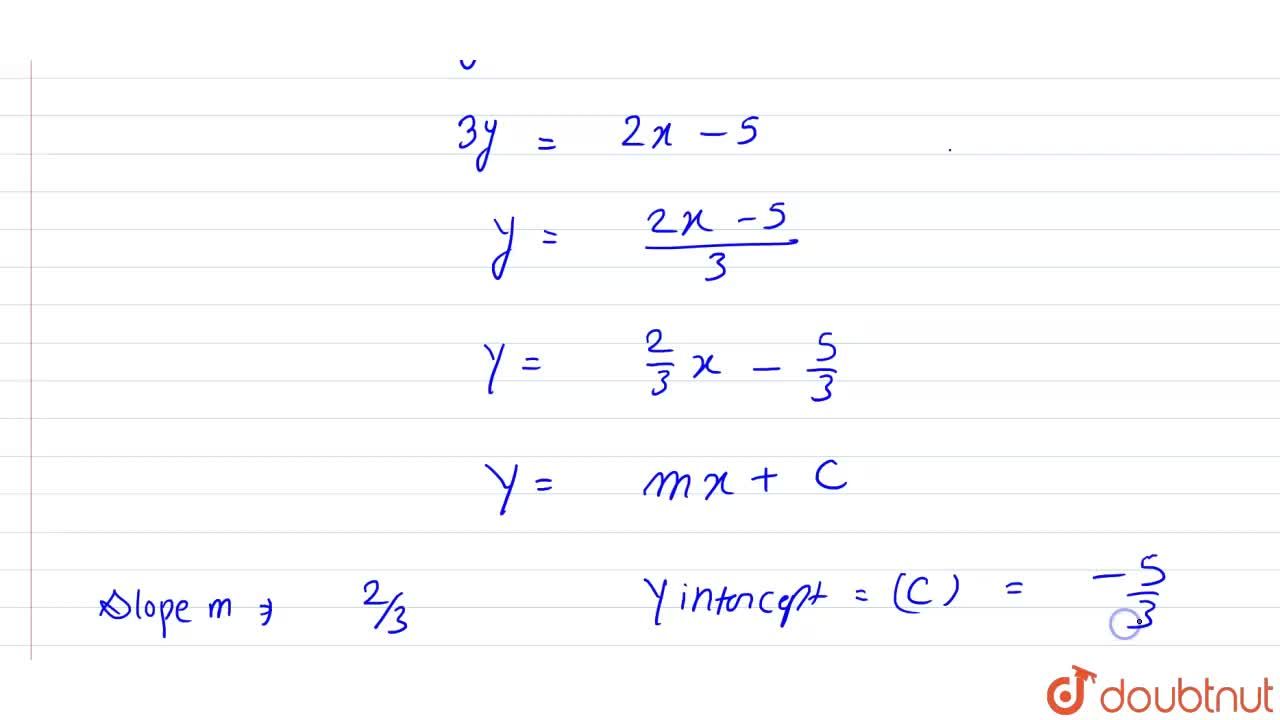 3y = 2x - 5
y = (2x - 5)/3
y = 2/3 x - 5/3
y = mx + C
Slope m ⇒ 2/3 Y intercept = (C) = -5/3
doubtnut